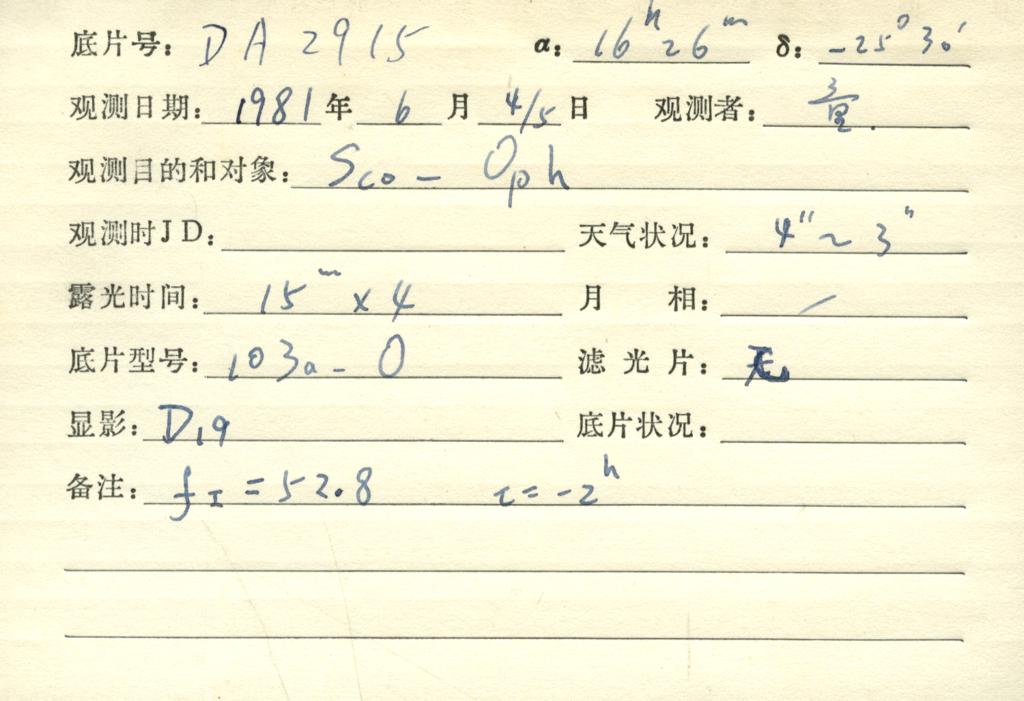 底片号: DA 2915 α: 16ʰ26ᵐ δ: -25°30′
观测日期: 1981年 6月 4/5日 观测者:
观测目的和对象: Sco - Oph
观测时JD: 天气状况: 4″~3″
露光时间: 15ᵐ x 4 月相: /
底片型号: 103a-O 滤光片: 无
显影: D19 底片状况:
备注: f_I = 52.8 t = -2ʰ